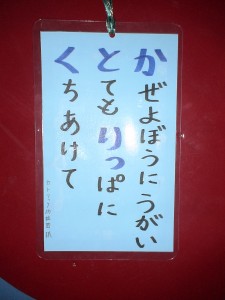 かぜよぼうにうがい
とてもりっぱに
くちあけて